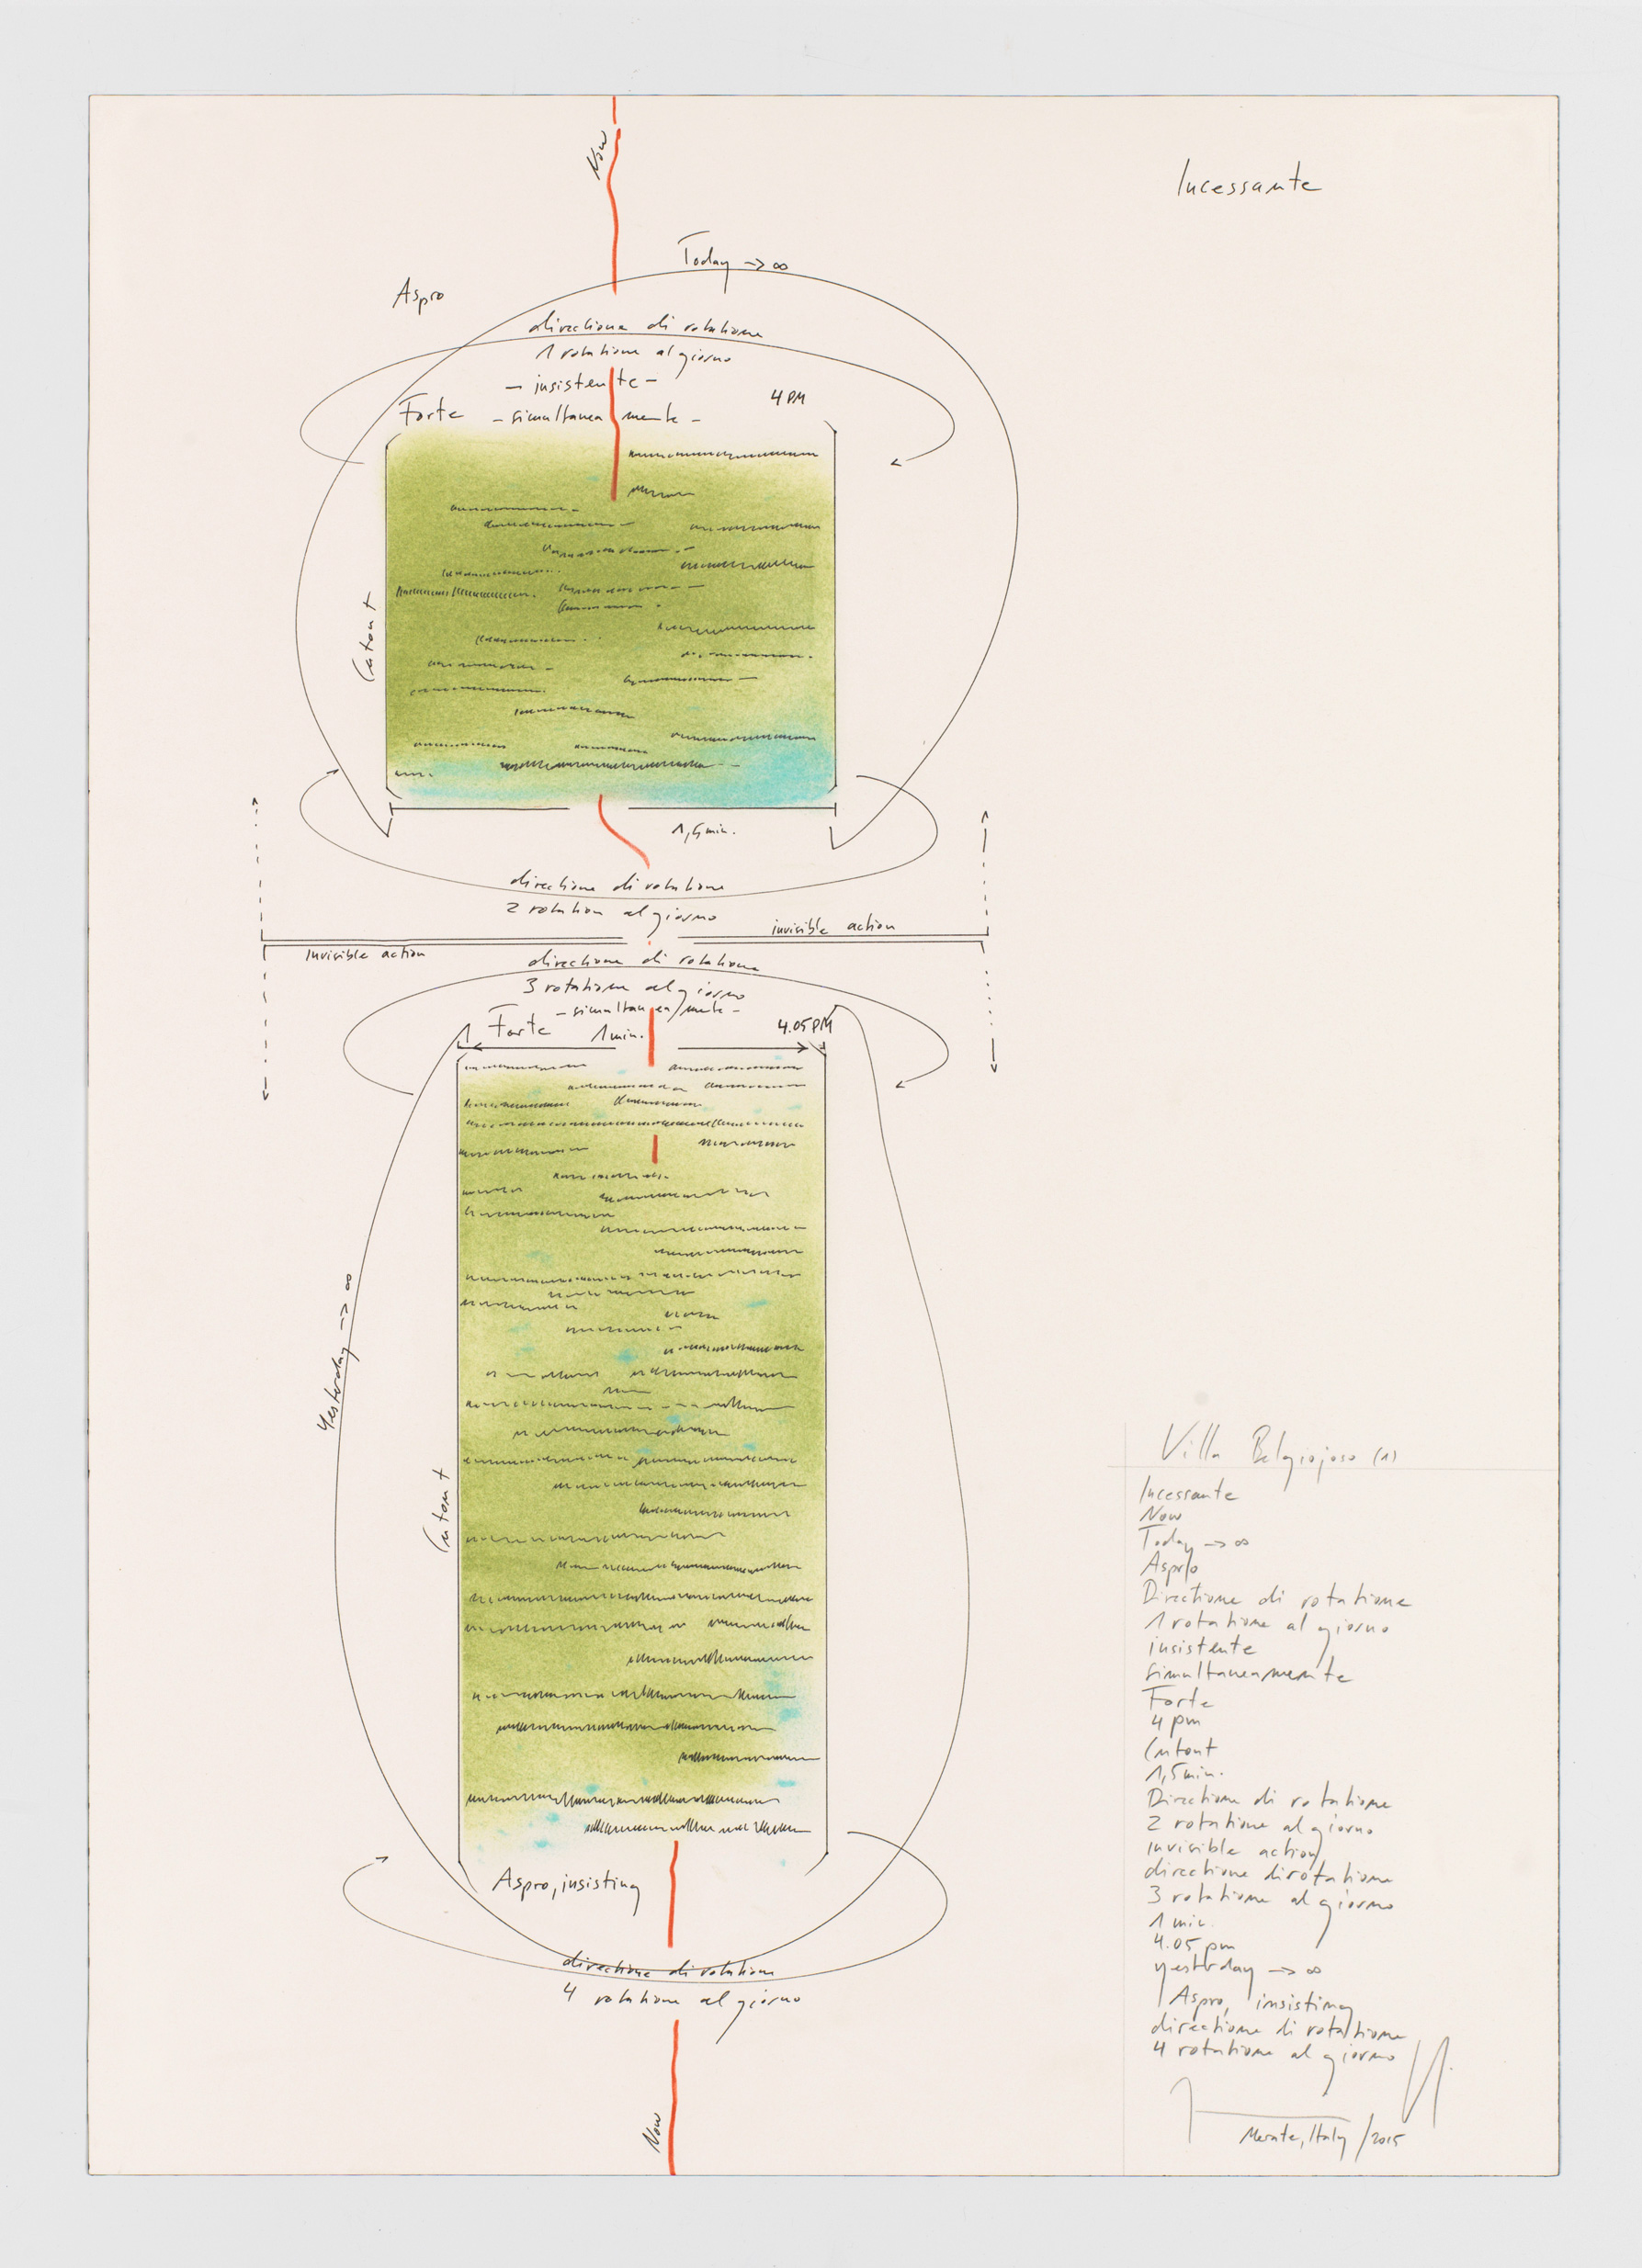 Now
Incessante
Today → ∞
Aspro
directione di rotatione
1 rotatione al giorno
- insistente -
4 PM
Forte - simultaneamente -
Cutout
1,5 min.
directione di rotatione
2 rotation al giorno
invisible action
Invisible action
directione di rotatione
3 rotatione al giorno
- simultaneamente -
Forte 1 min. 4.05 PM
Yesterday → ∞
Cutout
Aspro, insisting
directione di rotatione
4 rotatione al giorno
Now
Villa Belgiojoso (1)
Incessante
Now
Today → ∞
Aspro
Directione di rotatione
1 rotatione al giorno
insistente
simultaneamente
Forte
4 pm
Cutout
1,5 min.
Directione di rotatione
2 rotatione al giorno
Invisible action
directione di rotatione
3 rotatione al giorno
1 min.
4.05 pm
yesterday → ∞
Aspro, insisting
directione di rotatione
4 rotatione al giorno
Merate, Italy / 2015